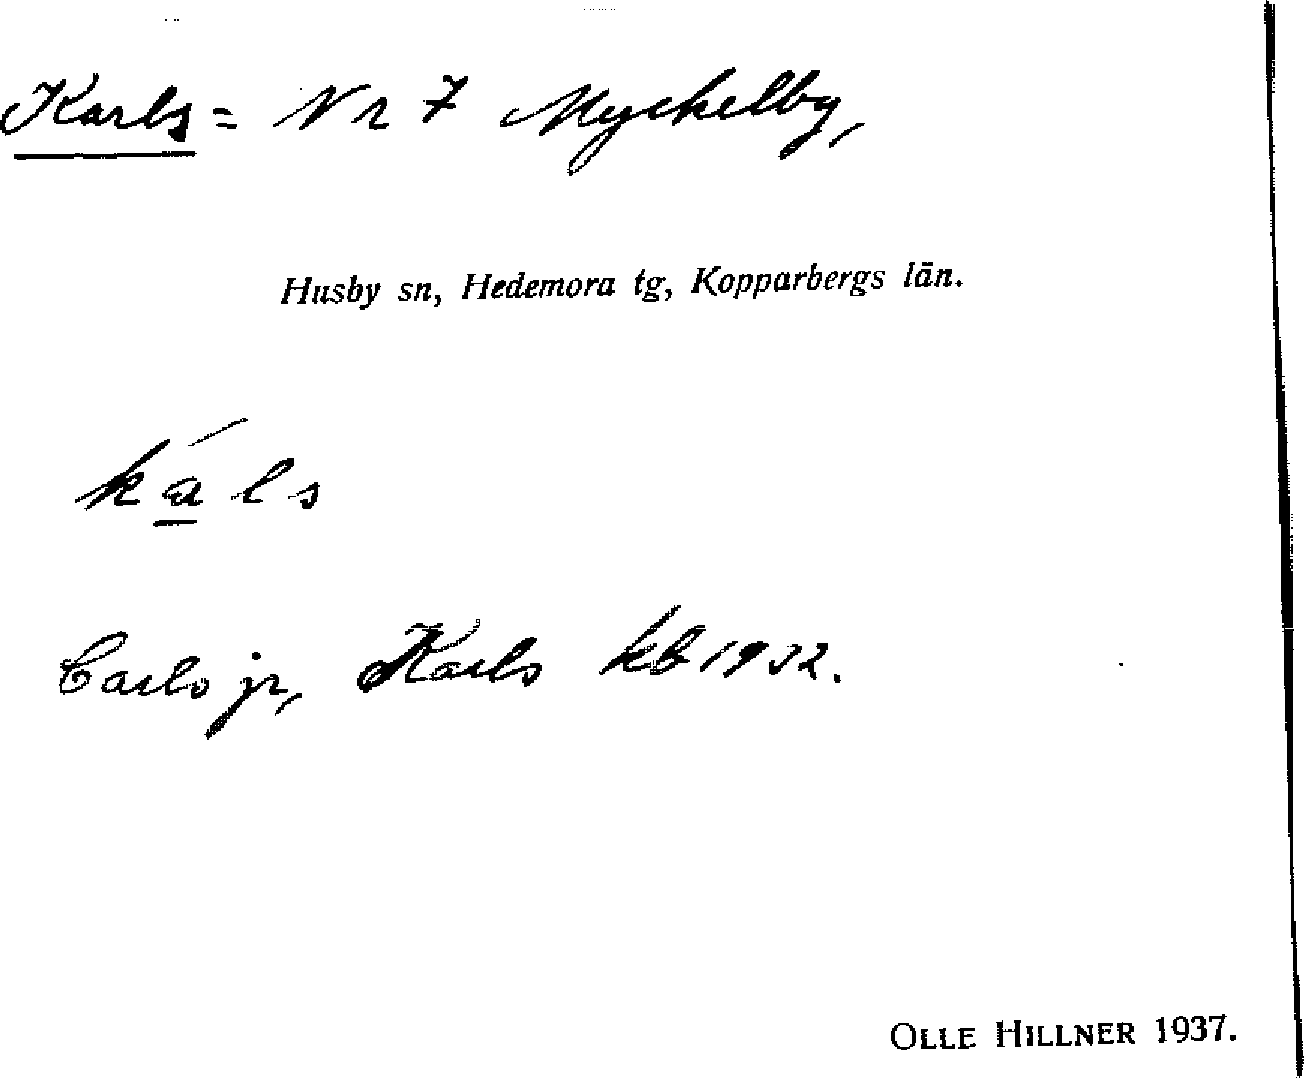 Karls = Nr 7 Myckelby,
Husby sn, Hedemora tg, Kopparbergs län.
ká̱ls
Carls jr, Karls kb 1932.
OLLE HILLNER 1937.